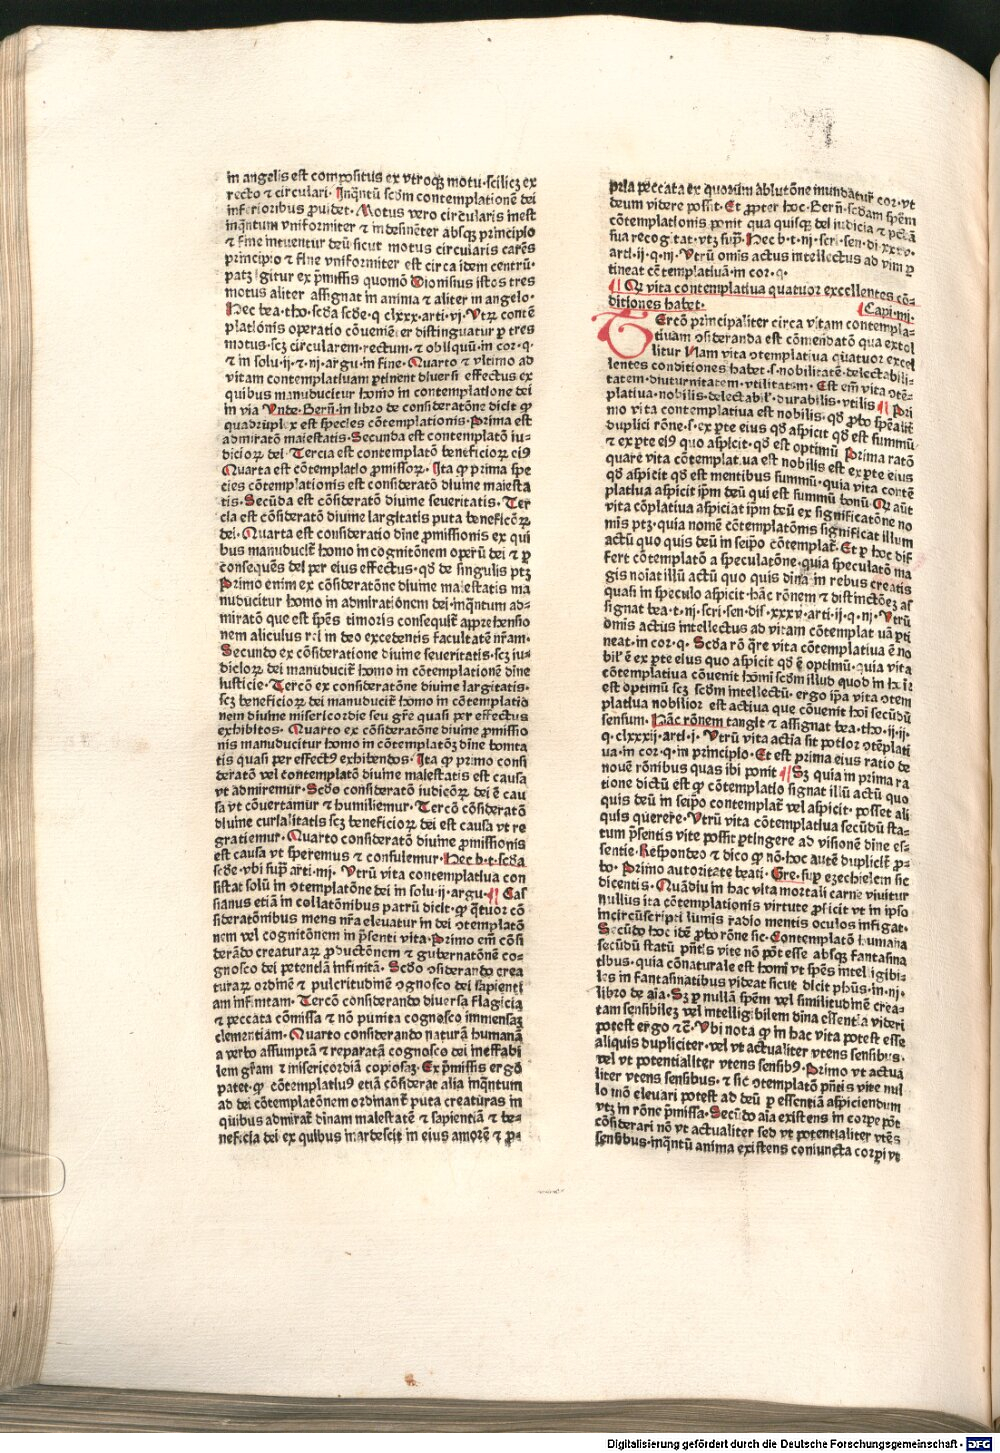 in angelis est compositus ex vtroqꝫ motu·scilicꝫ ex
recto ⁊ circulari· Inq̃ntũ scđm contemplationẽ dei
inferioribus ꝓuidet· Motus vero circularis inest
inq̃ntum vniformiter ⁊ indesinẽter absqꝫ principio
⁊ fine intuentur deũ sicut motus circularis carẽs
principio ⁊ fine vniformiter est circa idem centrũ·
patꝫ igitur ex p̃missis quomõ Dionisius istos tres
motus aliter assignat in anima ⁊ aliter in angelo·
Hec bea·tho·scđa scđe·q clxxx·arti·vj·Vtꝝ contẽ
plationis operatio cõueniẽter distinguatur p tres
motus·scꝫ circularem·rectum·⁊ obliquũ·in cor·q·
⁊ in solu·ij·⁊·nj·argu·in fine· Quarto ⁊ vltimo ad
vitam contemplatiuam ꝑtinent diuersi effectus ex
quibus manuducitur homo in contemplatione dei
in via Vnde·Berñ·in libro de consideratõne dicit ꝙ
quadruplex est species contemplationis·Prima est
admiratõ maiestatis· Secunda est contemplatõ iu-
dicioꝝ dei· Tercia est contemplatõ beneficioꝝ eiꝰ
Quarta est cõtemplatio ꝓmissoꝝ· Ita ꝙ prima spe
cies cõtemplationis est consideratõ diuine maiesta
tis· Secũda est cõsideratõ diuine seueritatis· Ter
cia est cõsideratõ diuine largitatis puta beneficõꝝ
dei· Quarta est consideratio diñe ꝓmissionis ex qui
bus manuducit̃ homo in cognitõnem operũ dei ⁊ p
consequẽs dei per eius effectus·qđ de singulis ptꝫ
Primo enim ex cõsideratõne diuine maiestatis ma
nuducitur homo in admirationem dei·inq̃ntum ad-
miratõ que est spẽs timoris consequit̃ apprehensio
nem alicuius rei in deo excedentis facultatẽ nr̃am·
Secundo ex cõsideratione diuine seueritatis·scꝫ iu-
dicioꝝ dei manuducit̃ homo in cõtemplationẽ diñe
iusticie· Tercõ ex consideratõne diuine largitatis·
scꝫ beneficioꝝ dei manuducit̃ homo in cõtemplatio
nem diuine misericordie seu gr̃e quasi per effectus
exhibitos· Quarto ex cõsideratõne diuine ꝓmissio
nis manuducitur homo in cõtemplatõꝫ diñe bonita
tis quasi per effectꝰ exhibendos· Ita ꝙ primo consi
deratõ vel contemplatõ diuine maiestatis est causa
vt admiremur· Scđo consideratõ iudicõꝝ dei ẽ cau
sa vt cõuertamur ⁊ humiliemur· Tercõ cõsideratõ
diuine curialitatis scꝫ beneficioꝝ dei est causa vt re
gratiemur· Quarto consideratõ diuine ꝓmissionis
est causa vt speremus ⁊ consulemur· Hec b·t·scđa
scđe·vbi sup̃ arti·mj· Vtrũ vita contemplatiua con
sistat solũ in ɔtemplatõne dei in solu·ij·argu· ¶ Cas
sianus etiã in collatõnibus patrũ dicit·ꝙ q̃tuor cõ
sideratõnibus mens nr̃a eleuatur in dei ɔtemplatõ
nem vel cognitõnem in p̃senti vita·Primo em̃ cõsi
derãdo creaturaꝝ ꝓductõnem ⁊ gubernatõnẽ co-
gnosco dei potentiã infinitã· Scđo ɔsiderando crea
turaꝝ ordinẽ ⁊ pulcritudinẽ ɔgnosco dei sapienti
am infinitam· Tercõ considerando diuersa flagicia
⁊ peccata cõmissa ⁊ nõ punita cognosco immensaꝫ
clementiam· Quarto considerando naturã humanã
a verbo assumptã ⁊ reparatã cognosco dei ineffabi
lem gr̃am ⁊ misericordiã copiosaꝫ· Ex p̃missis ergo
patet·ꝙ cõtemplatiuꝰ etiã cõsiderat alia inq̃ntum
ad dei cõtemplatõnem ordinant̃ puta creaturas in
quibus admirat̃ diuinam maiestatẽ ⁊ sapientiã ⁊ be-
neficia dei ex quibus inardescit in eius amorẽ ⁊ ꝓ-
pria peccata ex quorum ablutõne inundatur̃ cor·vt
deum videre possit· Et ꝓpter hoc·Berñ·scđam spẽm
cõtemplationis ponit qua quisqꝫ dei iudicia ⁊ pctã
sua recogitat·vtꝫ sup̃· Hec b·t·nj·scri·sen·di·xxxv·
arti·ij·q·nj·Vtrũ omis actus intellectus ad vim p
tineat cõtemplatiuã·in cor·q·
¶ Qꝙ vita contemplatiua quatuor excellentes cõ-
ditiones habet· ¶ Capi·mj·
TErcõ principaliter circa vitam contempla-
tiuam ɔsideranda est cõmendatõ qua extol
litur Nam vita ɔtemplatiua quatuor excel
lentes conditiones habet·s·nobilitatẽ·delectabili-
tatem·diuturnitatem·vtilitatem· Est em̃ vita ɔtẽ-
platiua·nobilis·delectabil̃·durabilis·vtilis ¶ Pri
mo vita contemplatiua est nobilis·qđ ꝓbo spẽalit̃
duplici rõne·s·ex ꝑte eius qđ aspicit qđ est summũ·
⁊ ex ꝑte eiꝰ quo aspicit·qđ est optimũ Prima ratõ
quare vita cõtemplatiua est nobilis est ex ꝑte eius
qđ aspicit qđ est mentibus summũ·quia vita contẽ
platiua aspicit ip̃m deũ qui est summũ bonũ· Qꝙ aũt
vita cõplatiua aspiciat ip̃m deũ ex significatõne no
mis ptꝫ·quia nomẽ cõtemplatõnis significat illum
actũ quo quis deũ in seip̃o cõtemplat̃· Et ꝑ hoc dif
fert cõtemplatõ a speculatõne·quia speculatõ ma
gis noiat illũ actũ quo quis diña in rebus creatis
quasi in speculo aspicit·hãc rõnem ⁊ distinctõeꝫ as
signat bea·t·nj·scri·sen·dis·xxxv·arti·ij·q·nj·Vtrũ
omis actus intellectus ad vitam cõtemplatiuã ꝑti
neat·in cor·q· Scđa rõ q̃re vita cõtemplatiua ẽ no
bil̃ ẽ ex ꝑte eius quo aspicit qđ ẽ optimũ·quia vita
cõtemplatiua cõuenit homi scđm illud quod in hoĩe
est optimũ scꝫ scđm intellectũ· ergo ip̃a vita ɔtem
platiua nobilior est actiua que cõuenit hoi secũdũ
sensum· Hãc rõnem tangit ⁊ assignat bea·tho·ij·ij·
q·clxxxij·arti·j· Vtrũ vita actia sit potior ɔtẽplati
ua·in cor·q·in principio· Et est prima eius ratio de
nouẽ rõnibus quas ibi ponit ¶ Sꝫ quia in prima ra
tione dictũ est ꝙ cõtemplatio signat illũ actũ quo
quis deũ in seip̃o contemplat̃ vel aspicit· posset ali
quis querere· Vtrũ vita cõtemplatiua secũdũ sta-
tum p̃sentis vite possit ꝑtingere ad visionẽ diñe es-
sentie· Respondeo ⁊ dico ꝙ nõ·hoc autẽ duplicit̃ ꝓ-
bo· Primo autoritate beati· Gre·sup̃ ezechielem sic
dicentis· Quãdiu in hac vita mortali carne viuitur
nullius ita cõtemplationis virtute ꝓficit vt in ipso
incircũscripti luminis radio mentis oculos infigat·
Secũdo hoc idẽ ꝓbo rõne sic· Contemplatõ humana
secũdũ statũ pñtis vite nõ põt esse absqꝫ fantasma
tibus·quia cõnaturale est homi vt spẽs intelligibi-
les in fantasmatibus videat sicut dicit phũs·in·nj·
libro de aĩa· Sꝫ p nullã spẽm vel similitudinẽ crea-
tam sensibileꝫ vel intelligibilem diña essentia videri
potest ergo ⁊c̃· Vbi nota ꝙ in hac vita potest esse
aliquis dupliciter· vel vt actualiter vtens sensibus·
vel vt potentialiter vtens sensibꝰ· Primo vt actua
liter vtens sensibus· ⁊ sic ɔtemplatõ pñtis vite nul
lo mõ eleuari potest ad deũ p essentiã aspiciendum
vtꝫ in rõne p̃missa· Secũdo aĩa existens in corpe põt
cõsiderari nõ vt actualiter sed vt potentialiter vtẽs
sensibus·inq̃ntũ anima existens coniuncta corpi vt